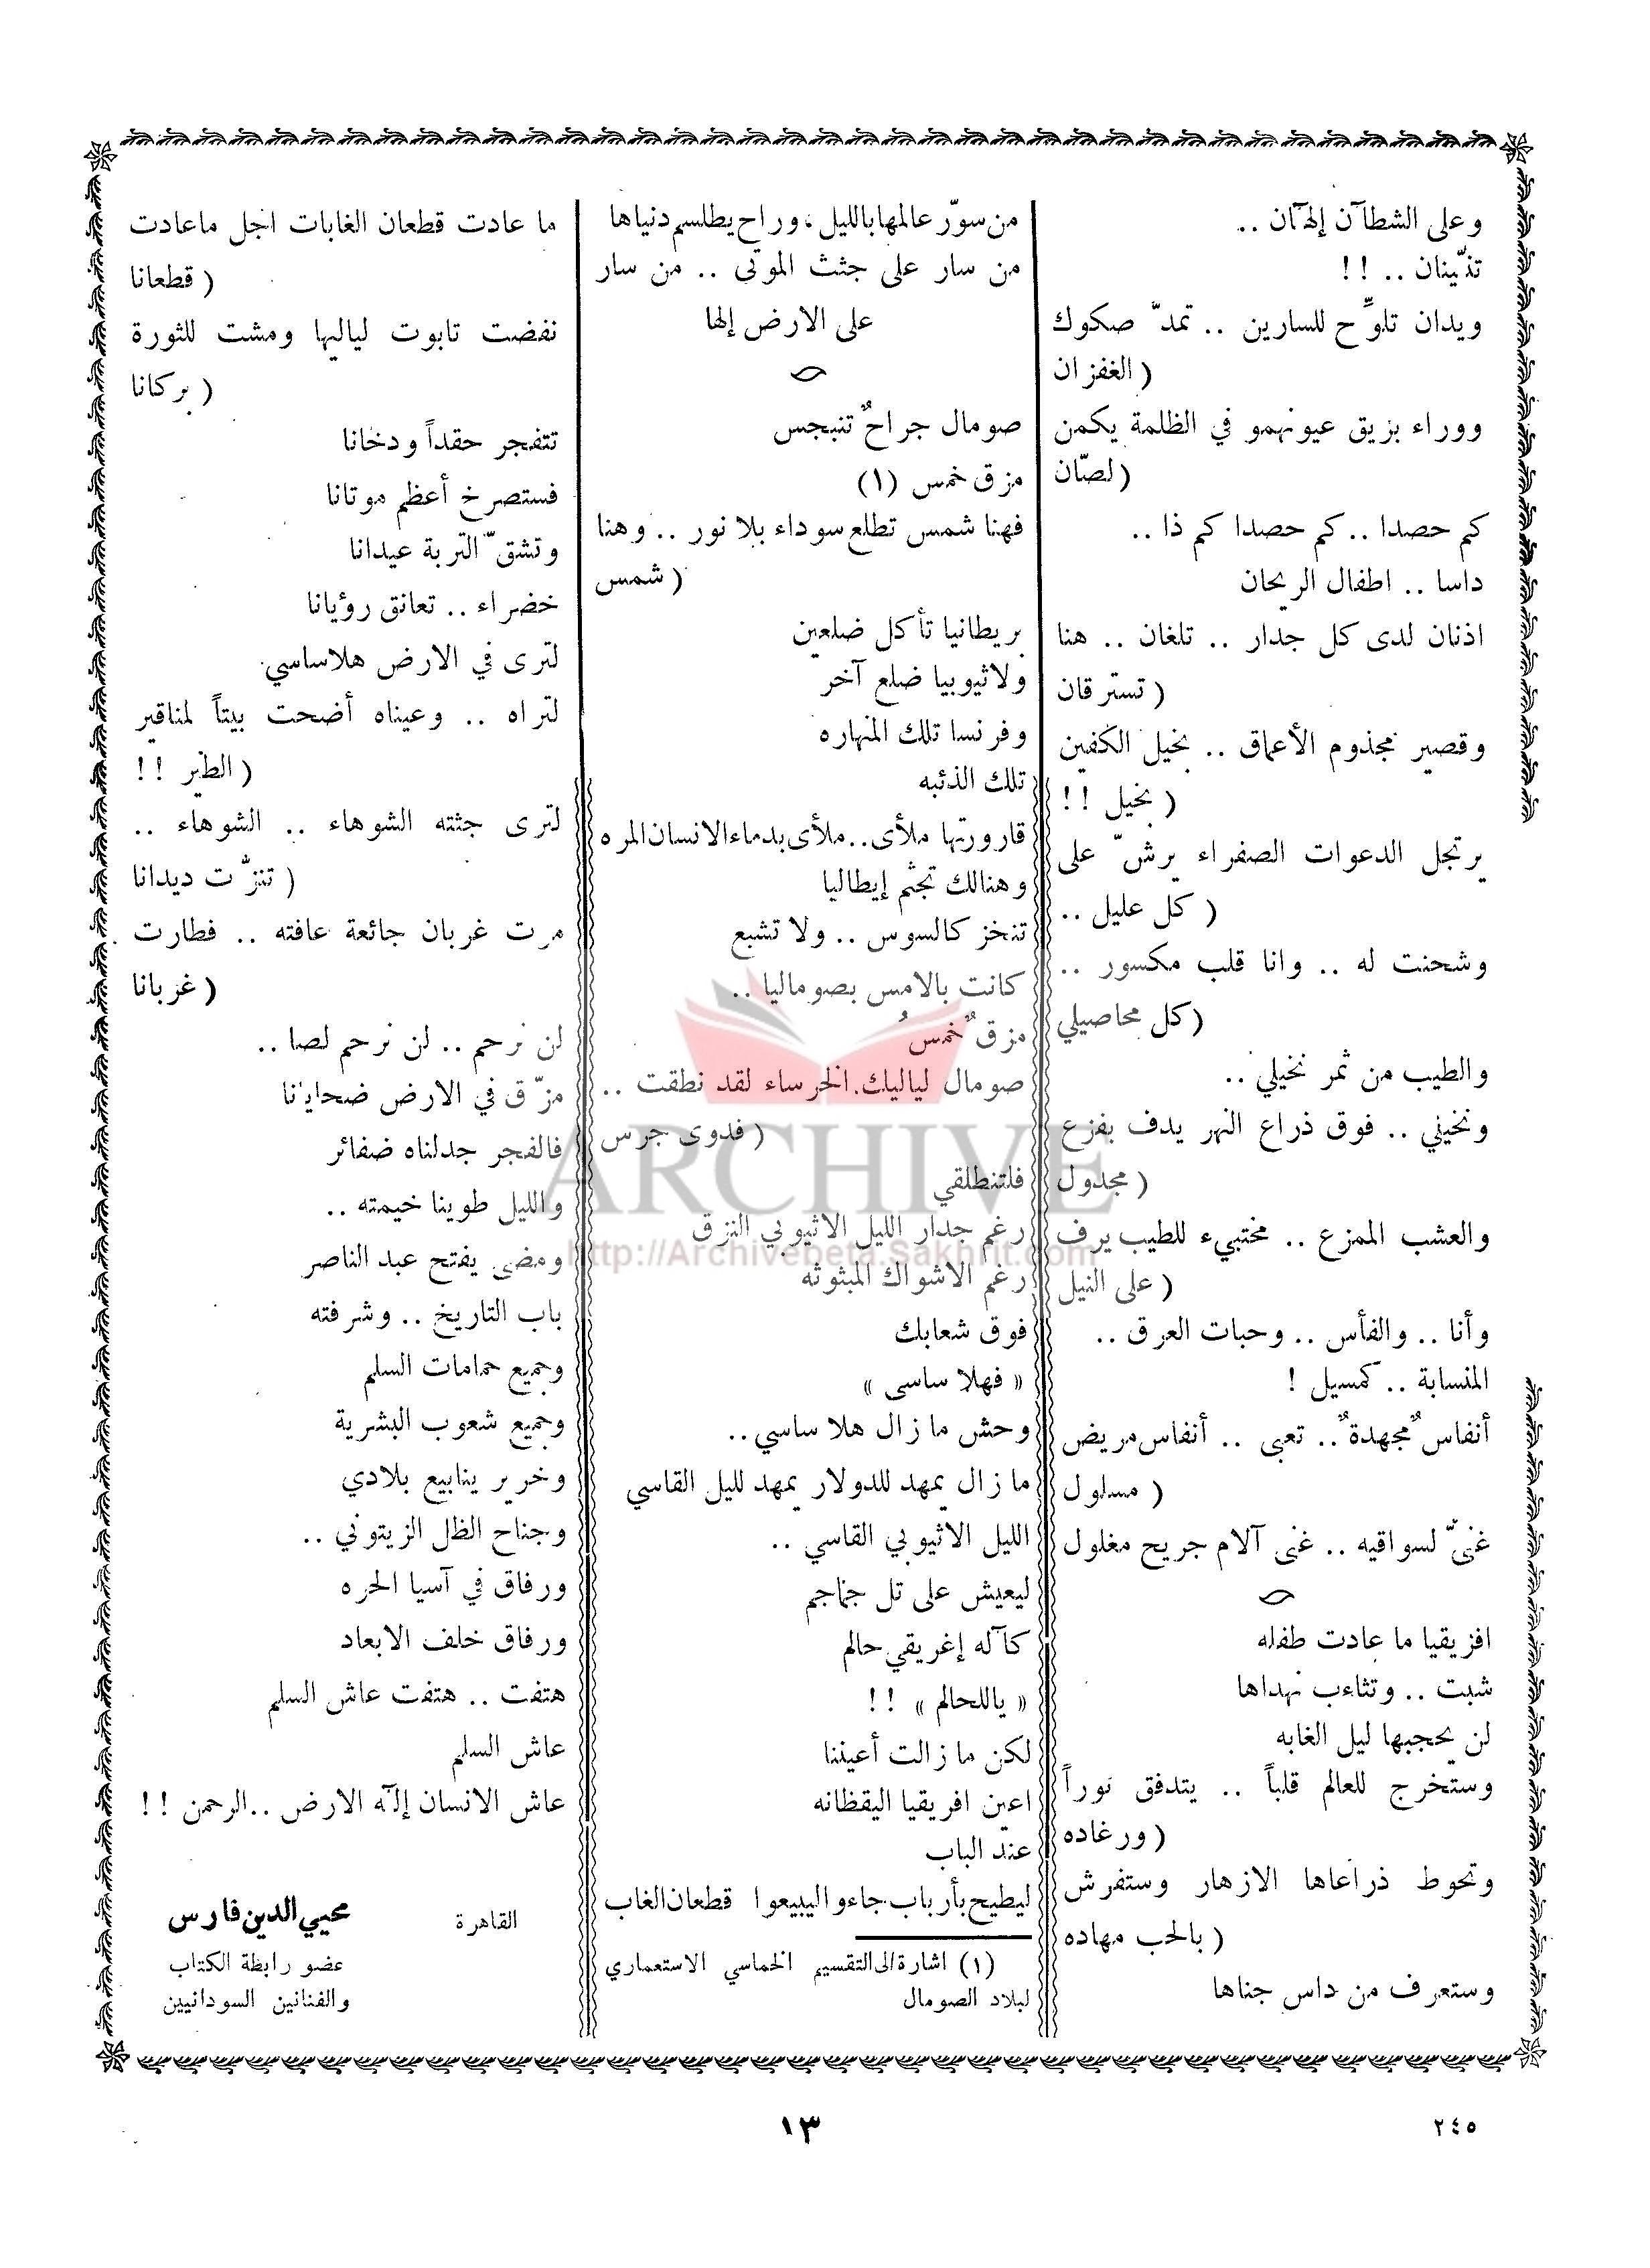 وعلى الشطآن إلهآن ..
تذّينان .. !!
ويدان تلوّح للسارين .. تمدّ صكوك
( الغفران
ووراء بزيق عيونهمو في الظلمة يكمن
( لصّان
كم حصدا .. كم حصدا كم ذا ..
داسا .. اطفال الريحان
اذنان لدى كل جدار .. تلغان .. هنا
( تسترقان
وقصير مجذوم الأعماق .. بخيل الكفين
( بخيل !!
يرتجل الدعوات الصفراء يرشّ على
( كل عليل ..
وشحنت له .. وانا قلب مكسور ..
( كل محاصيلي
والطيب من ثمر نخيلي ..
ونخيلي .. فوق ذراع النهر يدف بفزع
( مجدول
والعشب الممزع .. مختبيء للطيب يرف
( على النيل
وأنا .. والفأس .. وحبات العرق ..
المنسابة .. كمسيل !
أنفاسٌ مجهدةٌ .. تعبى .. أنفاس مريض
( مسلول
غنىّ لسواقيه .. غنى آلام جريح مغلول
افريقيا ما عادت طفله
شبت .. وتثاءب نهداها
لن يحجبها ليل الغابه
وستخرج للعالم قلباً .. يتدفق نوراً
( ورغاده
وتحوط ذراعاها الازهار وستفرش
( بالحب مهاده
وستعرف من داس جناها
من سوّر عالمها بالليل، وراح يطلسم دنياها
من سار على جثث الموتى .. من سار
على الارض إلها
صومال جراحٌ تنبجس
مزق خمس (١)
فهنا شمس تطلع سوداء بلا نور .. وهنا
( شمس
بريطانيا تأكل ضلعين
ولاثيوبيا ضلع آخر
وفرنسا تلك المنهاره
تلك الذئبه
قارورتها ملأى .. ملأى بدماء الانسان المره
وهنالك تجثم إيطاليا
تنخز كالسوس .. ولا تشبع
كانت بالامس بصوماليا ..
مزقٌ خمسُ
صومال لياليك الخرساء لقد نطقت ..
( فدوى جرس
فلتنطلقي
رغم جدار الليل الاثيوبي النزق
رغم الاشواك المبثوثه
فوق شعابك
« فهلا ساسى »
وحش ما زال هلا ساسي ..
ما زال يمهد للدولار يمهد لليل القاسي
الليل الاثيوبي القاسي ..
ليعيش على تل جماجم
كآله إغريقي حالم
« ياللحالم » !!
لكن ما زالت أعيننا
اعين افريقيا اليقظانه
عند الباب
ليطيح بأرباب جاءو اليبيعوا قطعان الغاب
(١) اشارة الى التقسيم الخماسي الاستعماري
لبلاد الصومال
ما عادت قطعان الغابات اجل ماعادت
( قطعانا
نفضت تابوت لياليها ومشت للثورة
( بركانا
تتفجر حقداً ودخانا
فستصرخ أعظم موتانا
وتشقّ التربة عيدانا
خضراء .. تعانق رؤيانا
لترى في الارض هلاساسي
لتراه .. وعيناه أضحت بيتاً لمناقير
( الطير !!
لترى جثته الشوهاء .. الشوهاء ..
( تنزّت ديدانا
مرت غربان جائعة عافته .. فطارت
( غربانا
لن نرحم .. لن نرحم لصا ..
مزّق في الارض ضحايانا
فالفجر جدلناه ضفائر
والليل طوينا خيمته ..
ومضى يفتح عبد الناصر
باب التاريخ .. وشرفته
وجميع حمامات السلم
وجميع شعوب البشرية
وخرير ينابيع بلادي
وجناح الظل الزيتوني ..
ورفاق في آسيا الحره
ورفاق خلف الابعاد
هتفت .. هتفت عاش السلم
عاش السلم
عاش الانسان إلآه الارض .. الرحمن !!
القاهرة
محيي الدين فارس
عضو رابطة الكتاب
والفنانين السودانيين
ARCHIVE
http://Archivebeta.Sakhrit.com
١٣
٢٤٥